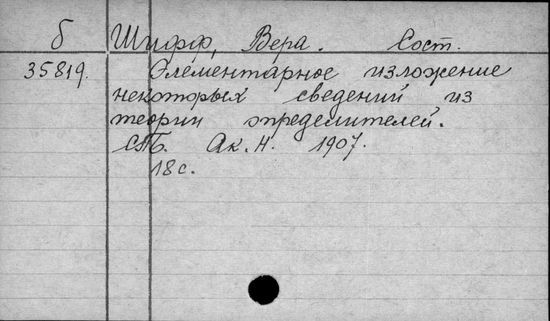 б Шифф, Вера. Сост.
35819. Элементарное изложение
некоторых сведений из
теории определителей.
СПБ. Ак. Н. 1907.
18 с.